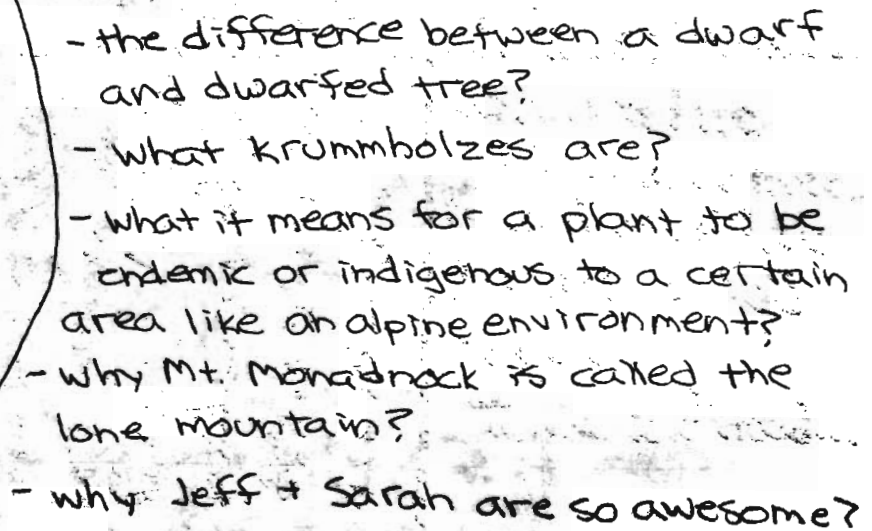 - the difference between a dwarf
and dwarfed tree?
- what krummholzes are?
- what it means for a plant to be
endemic or indigenous to a certain
area like an alpine environment?
- why Mt. Monadnock is called the
lone mountain?
- why Jeff + Sarah are so awesome?